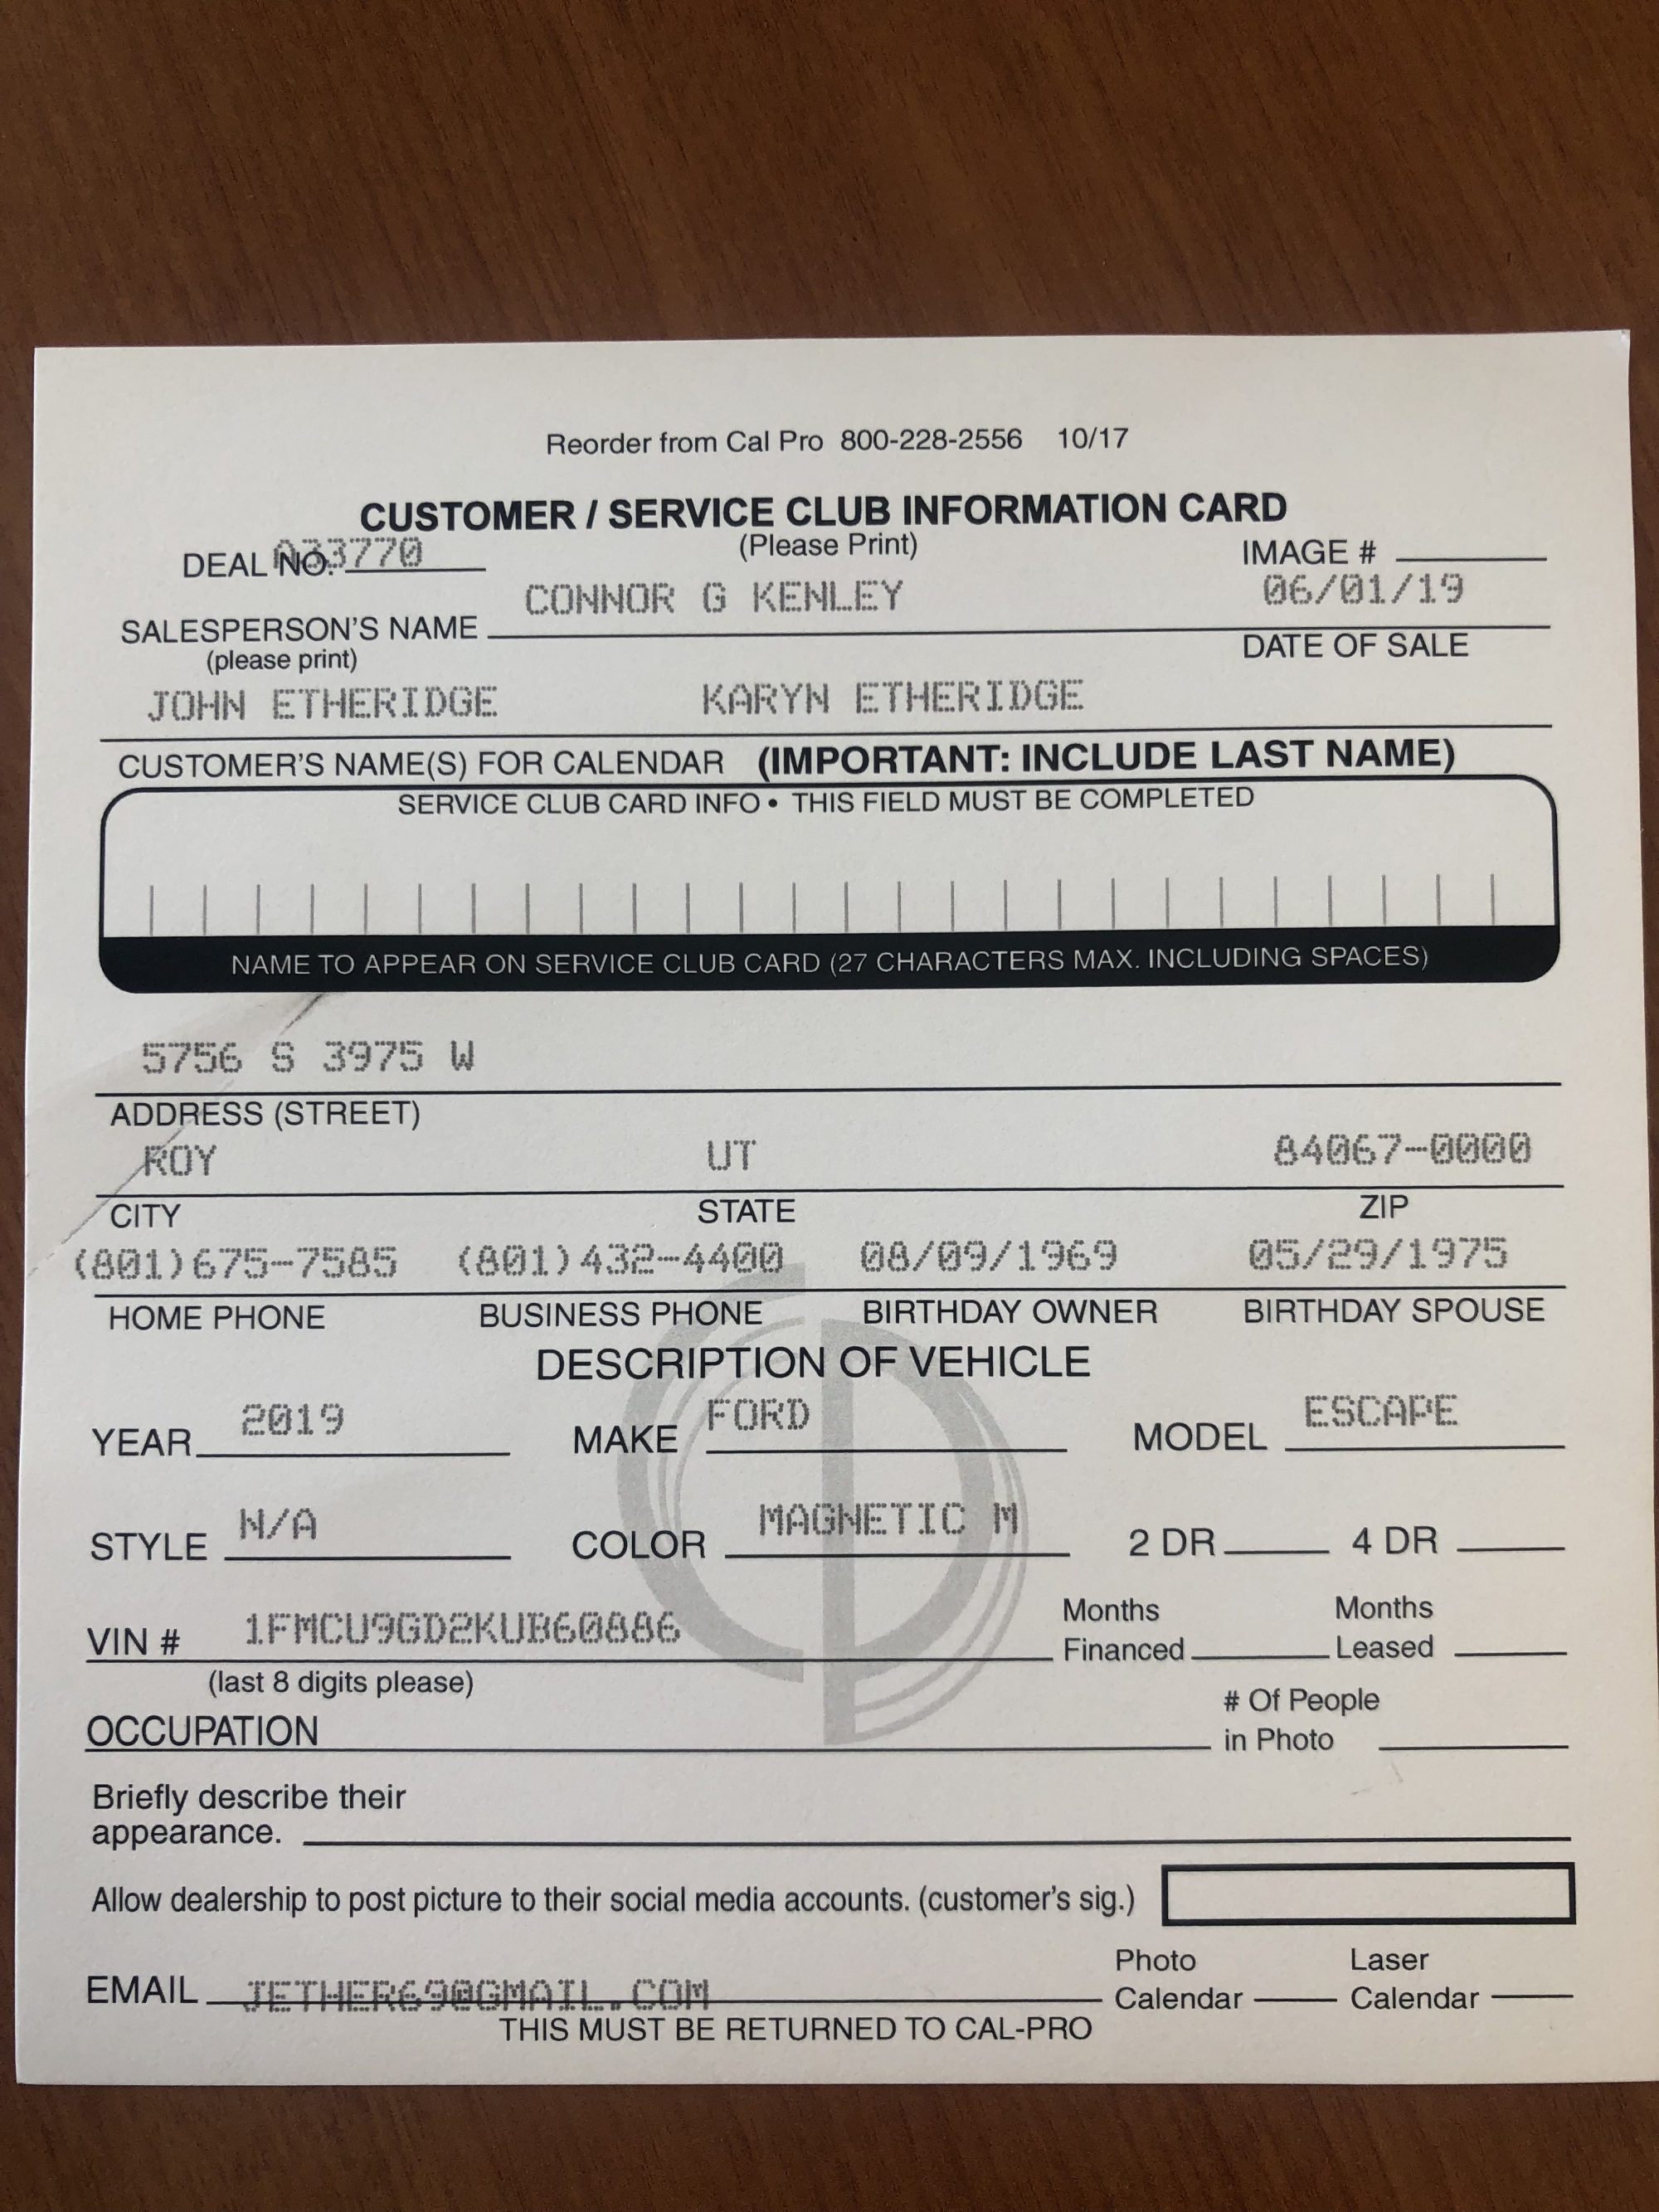 Reorder from Cal Pro 800-228-2556 10/17
CUSTOMER / SERVICE CLUB INFORMATION CARD
DEAL NO. A33770 (Please Print) IMAGE #
SALESPERSON'S NAME CONNOR G KENLEY 06/01/19
(please print) DATE OF SALE
JOHN ETHERIDGE KARYN ETHERIDGE
CUSTOMER'S NAME(S) FOR CALENDAR (IMPORTANT: INCLUDE LAST NAME)
SERVICE CLUB CARD INFO • THIS FIELD MUST BE COMPLETED
NAME TO APPEAR ON SERVICE CLUB CARD (27 CHARACTERS MAX. INCLUDING SPACES)
5756 S 3975 W
ADDRESS (STREET)
ROY UT 84067-0000
CITY STATE ZIP
(801)675-7585 (801)432-4400 08/09/1969 05/29/1975
HOME PHONE BUSINESS PHONE BIRTHDAY OWNER BIRTHDAY SPOUSE
DESCRIPTION OF VEHICLE
YEAR 2019 MAKE FORD MODEL ESCAPE
STYLE N/A COLOR MAGNETIC M 2 DR 4 DR
VIN # 1FMCU9GD2KUB60886 Months Financed Months Leased
(last 8 digits please)
OCCUPATION # Of People in Photo
Briefly describe their
appearance.
Allow dealership to post picture to their social media accounts. (customer's sig.)
EMAIL JETHER69@GMAIL.COM Photo Calendar Laser Calendar
THIS MUST BE RETURNED TO CAL-PRO